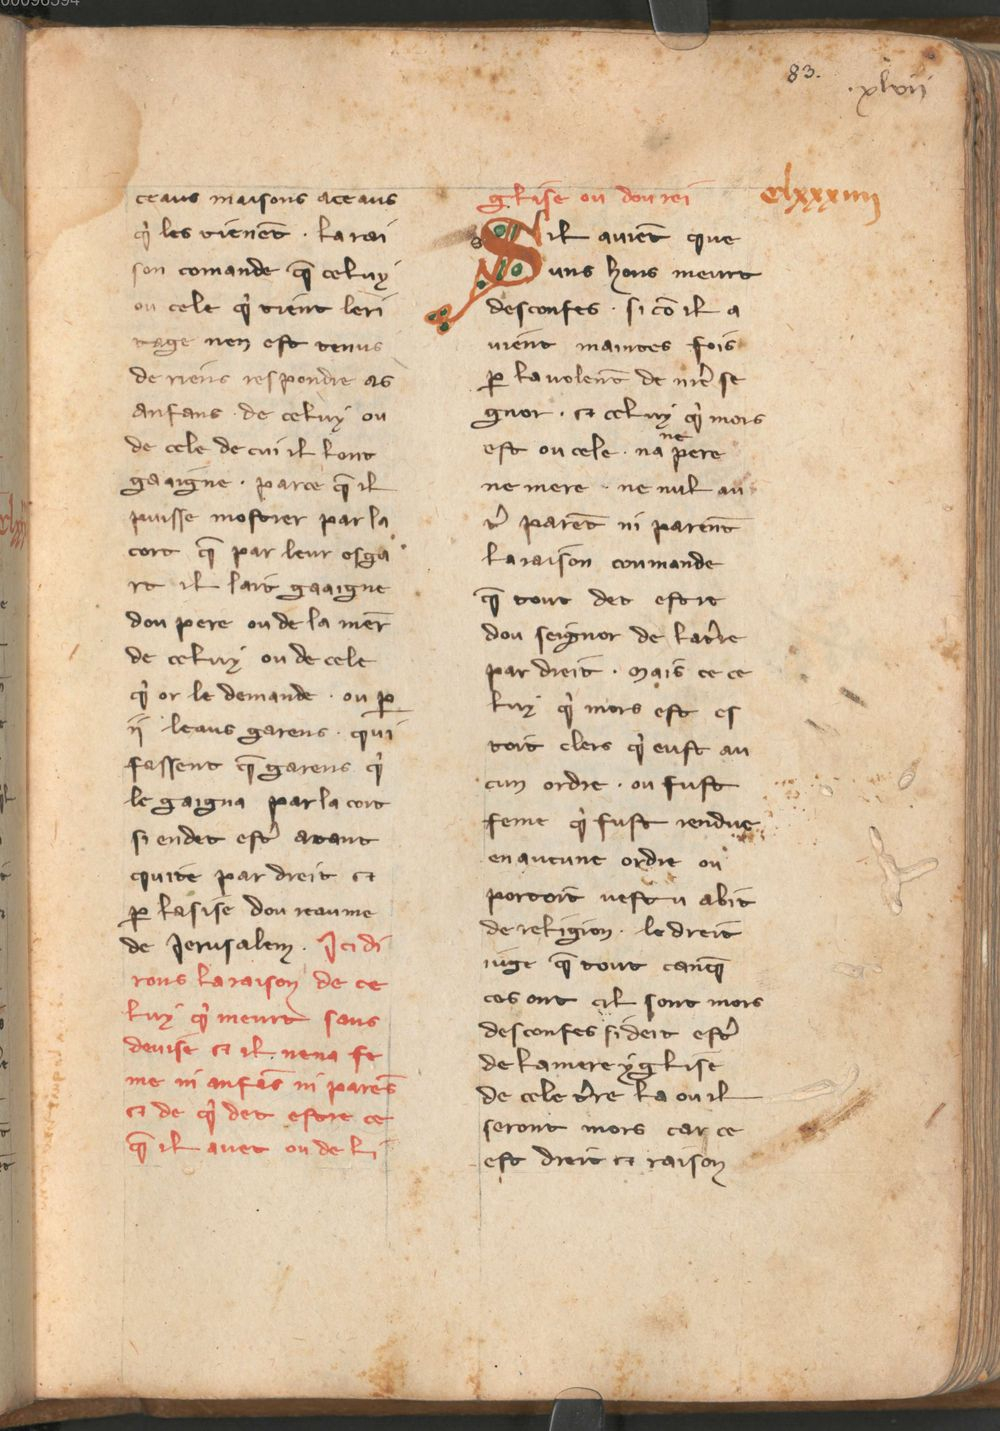 83.
.xlvii
ceaus maisons aceaus
q̇ les tienēt . la rai
son comande q̄ce celuy
ou cele q̇ tient leri
tage nen est tenus
de riens respondre as
anfans . de celuy ou
de cele de cui il lont
gaaigne . parce q̄ il
puisse mostrer par la
cort q̄ par leur esga
rt il lait gaaigne
dou pere ou de la mer̄
de celuy ou de cele
q̇ or le demande . ou ꝑ
ij leaus garens . qui
fassent q̄ garens q̇
le gaigna par la cort
si en det estr̉ atant
quite par dreit et
ꝑ lasise dou reaume
de Jerusalem . Ici di
rons la raison de ce
luy q̇ meurt sans
devise et il nena fe
me ni anfās ni parēs
et de q̇ det estre ce
q̄ il avet ou de li
glise ou dou rei
clxxxiiii
Sil avient que
uns hons meurt
desconfes . si cō il a
vient maintes fois
ꝑ la volent̄ de nr̄e se
gnor . et celuy q̇ mors
est ou cele . na ne pere
ne mere . ne nul au
tr̉ parēt ni parent̄
la raison coumande
q̄ tout det estre
dou seignor de la tr̉re
par dreit . Mais ce ce
luy q̇ mors est es
toit clers q̇ eust au
cun ordre . ou fust
feme q̇ fust rendue
en aucune ordre ou
portoit vestu abit
de religion . le dreit
iuge q̄ tout canq̄
ces ont cil sont mors
desconfes si deit estr̉
de la mere yglise
de cele tr̉re la ou il
seront mors car ce
est dreit et raison